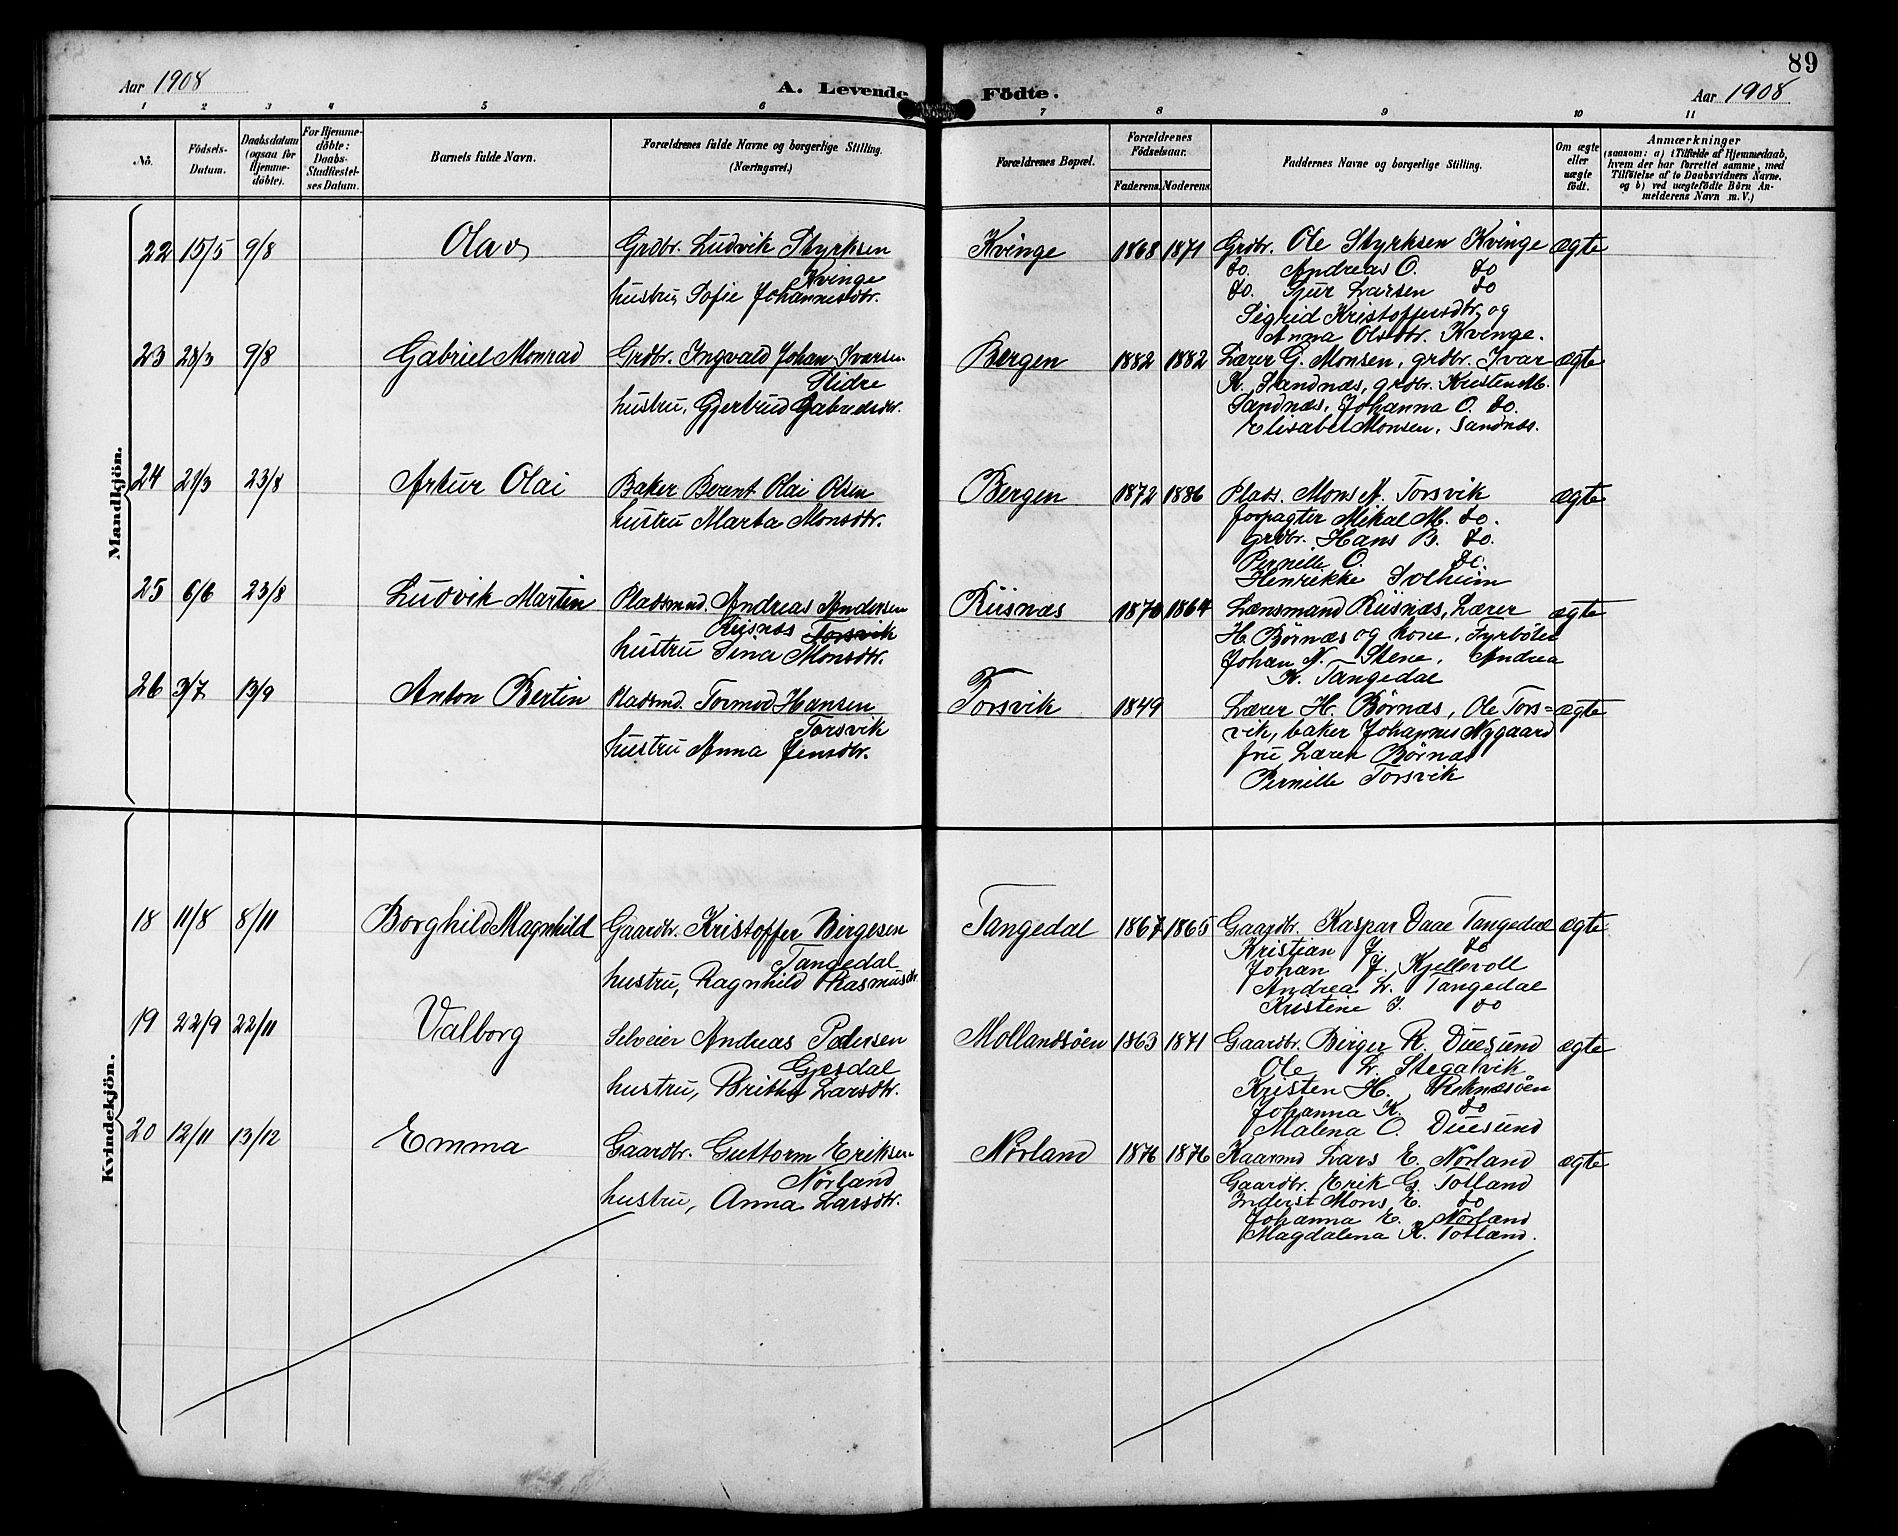 89
Aar 1908
A. Levende Födte.
Aar 1908
1 2 3 4 5 6 7 8 9 10 11
No.
Födsels-Datum.
Daabsdatum (ogsaa for Hjemme-döbte).
For Hjemme-döbte: Daabs-Stadfæstel-ses Datum.
Barnets fulde Navn.
Forældrenes fulde Navne og borgerlige Stilling.
(Næringsvei.)
Forældrenes Bopæl.
Forældrenes Födselsaar.
Faderens. Moderens.
Faddernes Navne og borgerlige Stilling.
Om ægte eller uægte födt.
Anmærkninger
(saasom: a) i Tilfælde af Hjemmedaab,
hvem der har forrettet samme, med
Tilföielse af to Daabsvidners Navne.
og b) ved uægtefödte Börn An-
melderens Navn m. V.)
Mandkjön.
22 15/5 9/8 Olav Grdbr. Ludvik Styrksen Kvinge 1868 1871 Grdbr. Ole Styrksen Kvinge ægte
Kvinge do. Andreas O. do
hustru, Sofie Johannesdtr. do. Sjur Larsen do
Sigrid Kristoffersdtr. og
Anna Olsdtr. Kvinge.
23 28/3 9/8 Gabriel Monrad Grdbr. Ingvald Johan Ivarsen Bergen 1882 1882 Lærer G. Monsen, grdbr. Ivar ægte
Slidre K. Sandnæs, grdbr. Kristen M.
hustru, Gjertrud Gabrielsdtr. Sandnæs, Johanna O. do.
Elisabet Monsen, Sandnæs.
24 21/3 23/8 Artur Olai Baker Berent Olai Olsen Bergen 1872 1886 Plads. Mons A. Torsvik ægte
hustru Marta Monsdtr. forpagter Mikal M. do.
Grdbr. Hans B. do.
Pernille O. do.
Henrikke Solheim
25 6/6 23/8 Ludvik Martin Pladsmnd. Andreas Andersen Riisnæs 1870 1864 Lænsmand Riisnæs, Lærer ægte
Riisnæs Torsvik H. Börnæs og kone, Fyrböter
hustru Sina Monsdtr. Johan N. Stene, Andrea
K. Tangedal
26 3/7 13/9 Anton Bertin Pladsmd. Tormod Hansen Torsvik 1849 Lærer H. Börnæs, Ole Tors= ægte
Torsvik vik, baker Johannes Nygaard
hustru Anna Jensdtr. fru Lærer Börnæs
Pernille Torsvik
Kvindekjön.
18 11/8 8/11 Borghild Magnhild Gaardbr. Kristoffer Birgesen Tangedal 1867 1865 Gaardbr. Kaspar Daae Tangedal ægte
Tangedal Kristian J. do
hustru, Ragnhild Rasmusdtr Johan J. Kjellevoll
Andrea L. Tangedal
Kristine J. do
19 22/9 22/11 Valborg Selveier Andreas Pedersen Mollandsöen 1863 1871 Gaardbr. Birger R. Duesund ægte
Gjesdal Ole L. Stegalvik
hustru, Britha Larsdtr. Kristen H. Reknæsöen
Johanna K. do
Malena O. Duesund
20 12/11 13/12 Emma Gaardbr. Guttorm Eriksen Nörland 1876 1876 Kaarmd Lars E. Nörland ægte
Nörland Gaardbr. Erik G. Totland
hustru, Anna Larsdtr. Inderst Mons E. do
Johanna E. Nörland
Magdalena K. Totland.